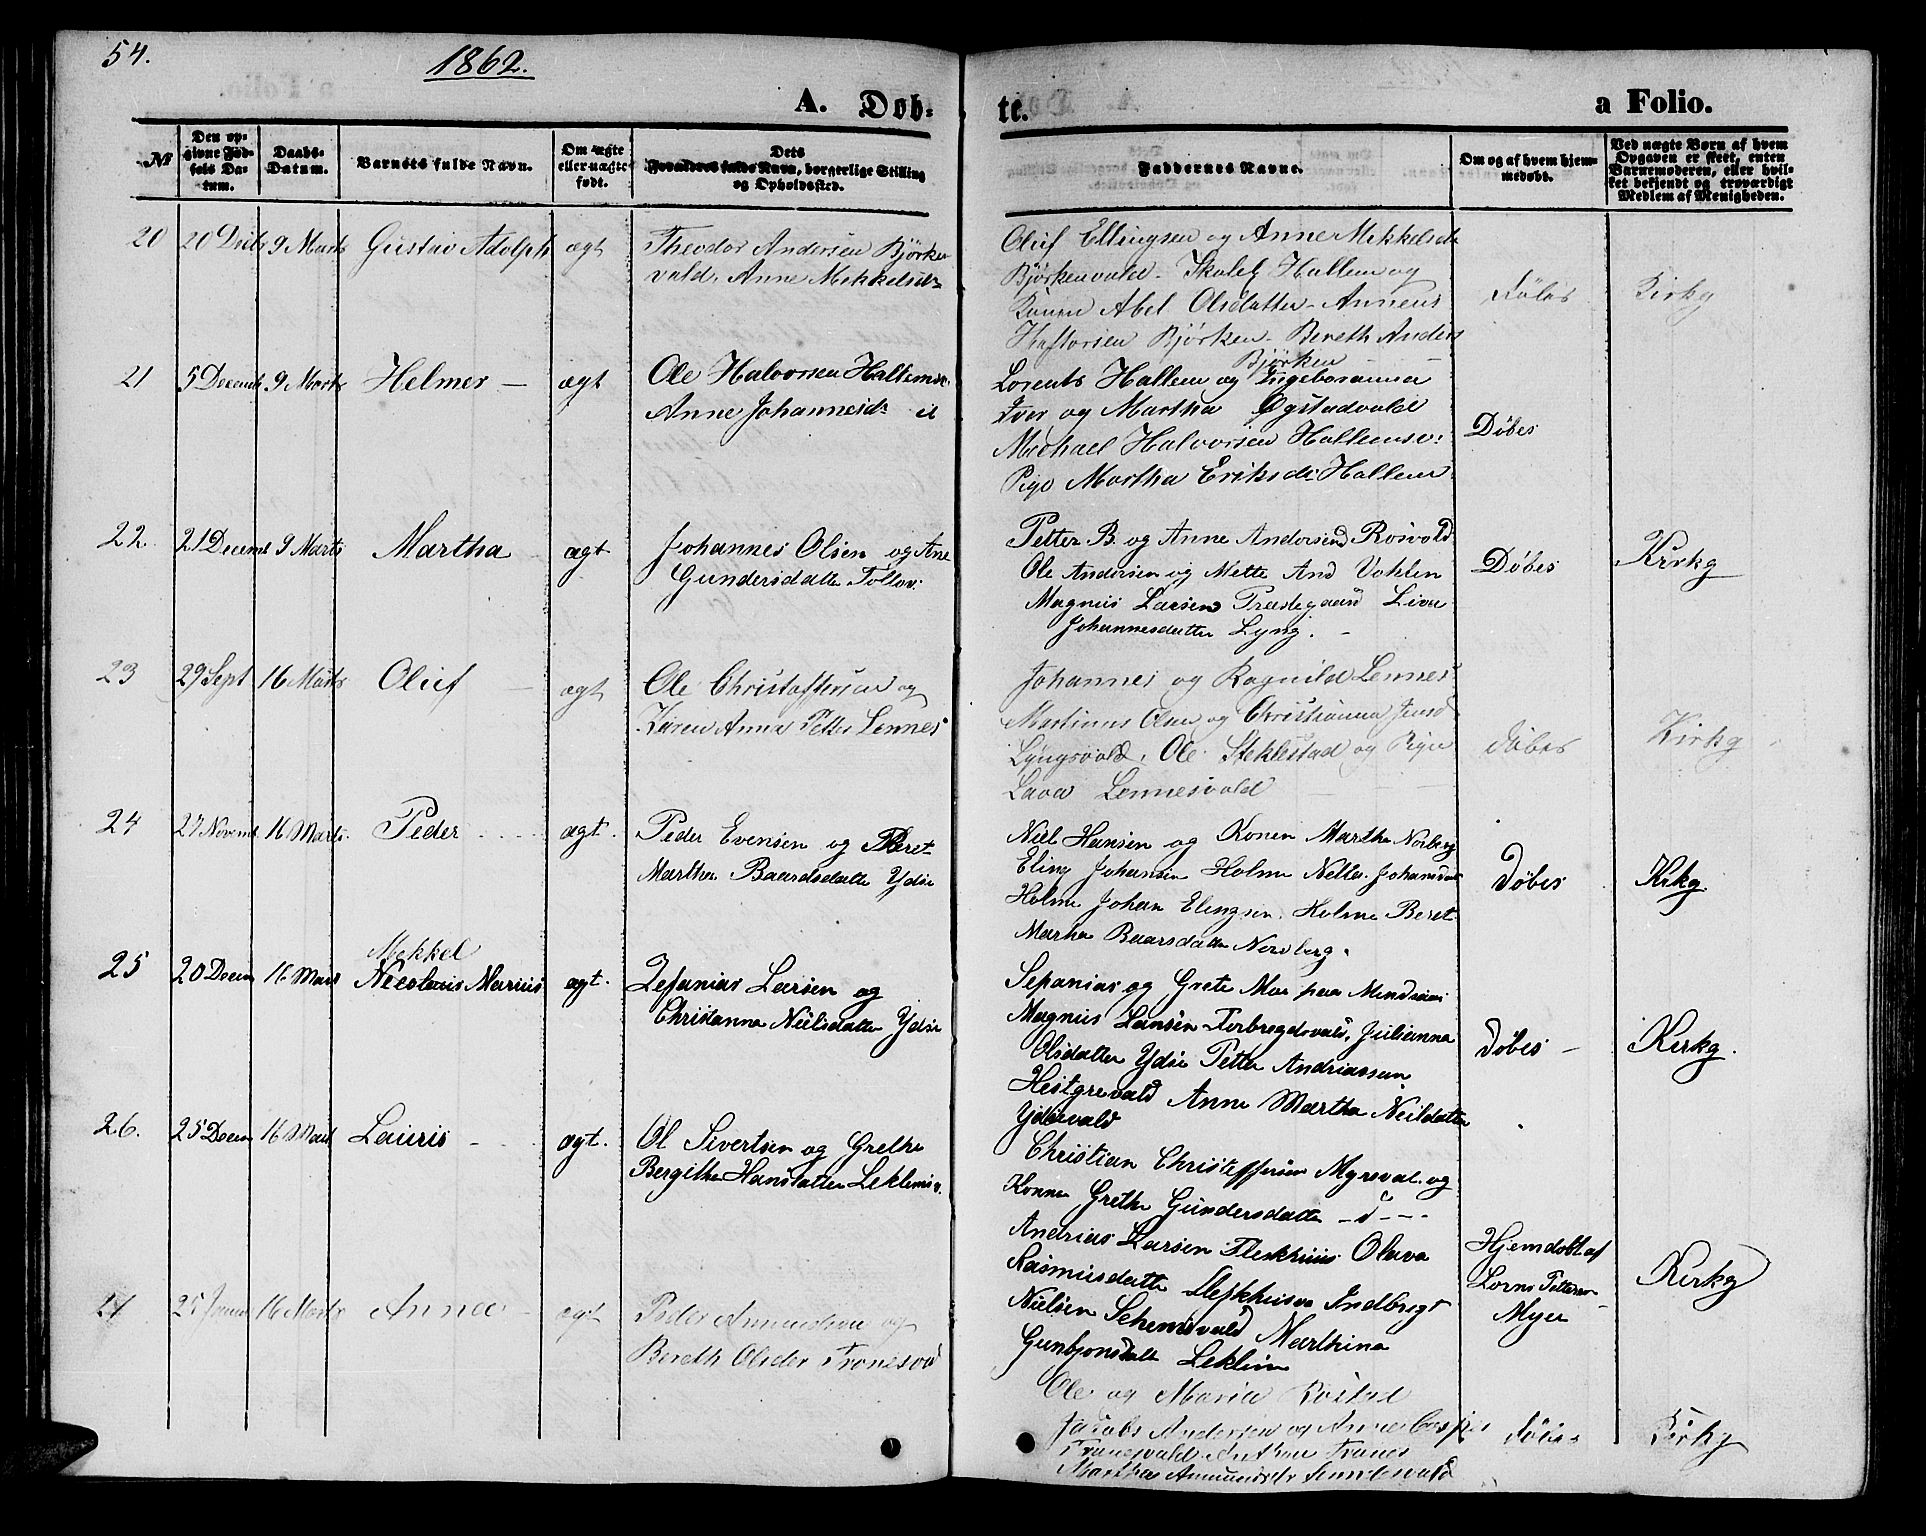 54.
1862.
A. Døb-
te.
a Folio.
№
Den op-
givne Fød-
sels Da-
tum.
Daabs-
Datum.
Barnets fulde Navn.
Om ægte
eller uægte
født.
Dets
Forældres fulde Navn, borgerlige Stilling
og Opholdssted.
Faddernes Navne.
Om og af hvem hjem-
medøbt.
Ved uægte Børn af hvem
Opgaven er skeet, enten
Barnemoderen, eller hvil-
ket bekjendt og troværdigt
Medlem af Menigheden.
20 9 Marts Gustav Adolph ægt
Theodor Andersen Bjørken
vald, Anne Mekkelsd
Oluf Ellingsen og Anne Mekkelsd
Bjørkenvald - Hallem og
Abel Olsdatter - Anneus
Haftorsen Bjørken - Bereth Anders
Bjørken
Døbes Kirkg
21 5 Decemb 9 Marts Helmer - ægt
Ole Halvorsen Hallems
Anne Johannesd
Lorents Hallem og Ingeboranna
Iver og Martha Øgstadvald
Michael Halvorsen Hallemsv:
Pige Martha Eriksd Hallem
Døbes
22. 21 Decemb 9 Marts Martha ægt
Johannes Olsen og Ane
Gundersdatte Follov:
Petter B. og Anne Andersend Rosvold
Ole Andersen og Mette And Vohlen
Magnus Larsen Præstegaard Liva
Johannesdatter Lyng. -
Døbes Kirkg
23 29 Sept 16 Marts Oluf - ægt
Ole Christoffersen og
Karen Anna Petter Lennes
Johannes og Ragnild Lennes
Martinus Olsen og Christianna Jensd
Lyngsvald, Ole Steklestad og Pigen
Lava Lennesvald
døbes Kirkg
24 27 Novemb. 16 Marts Peder ægt.
Peder Evensen og Beret
Martha Baardsdatte Ydse
Niel Hansen og Konen Martha Norberg
Eling Johansen Holme Johansdat
Holme Johan Elingsen Holme Beret
Martha Baarsdatte Nordberg.
Døbes Kirkg.
25 20 Decem 16 Marts
Mekkel
Nicolaus Marius ægt.
Zefanias Larsen og
Christanna Nielsdatte Ydse
Sepanias og Grete Moe paa
Magnus Larsen Forbregdsvald, Julianna
Olsdatter Ydse Petter Andriassen
Hestgrevald Anne Martha Neildatter
Ydsevald
døbes - Kirkg.
26. 25 Decem 16 Marts Lauris - ægt.
Ol Sivertsen og Grethe
Bergithe Hansdatter Leklemsv.
Christian Christoffersen Myrsval og
Konne Grethe Gundersdatte - d - - -
Andrias Larsen Flekhuus Olava
Rasmusdatte Indbrygt
Nielsen Semsvald Marthina
Gunbjonsdatte Leklem
Hjemdøbt af
Lorns Petersen
Myer
Kirkg
27 25 Janua 16 Marts Anna - ægt
Peder Amundsen og
Bereth Olsder Tronesvd
Ole og Maria Rostad
Jacob Andersen og Anne
Tronesvald Anthon Trones
Martha Amundsdr
døbes Kirkg